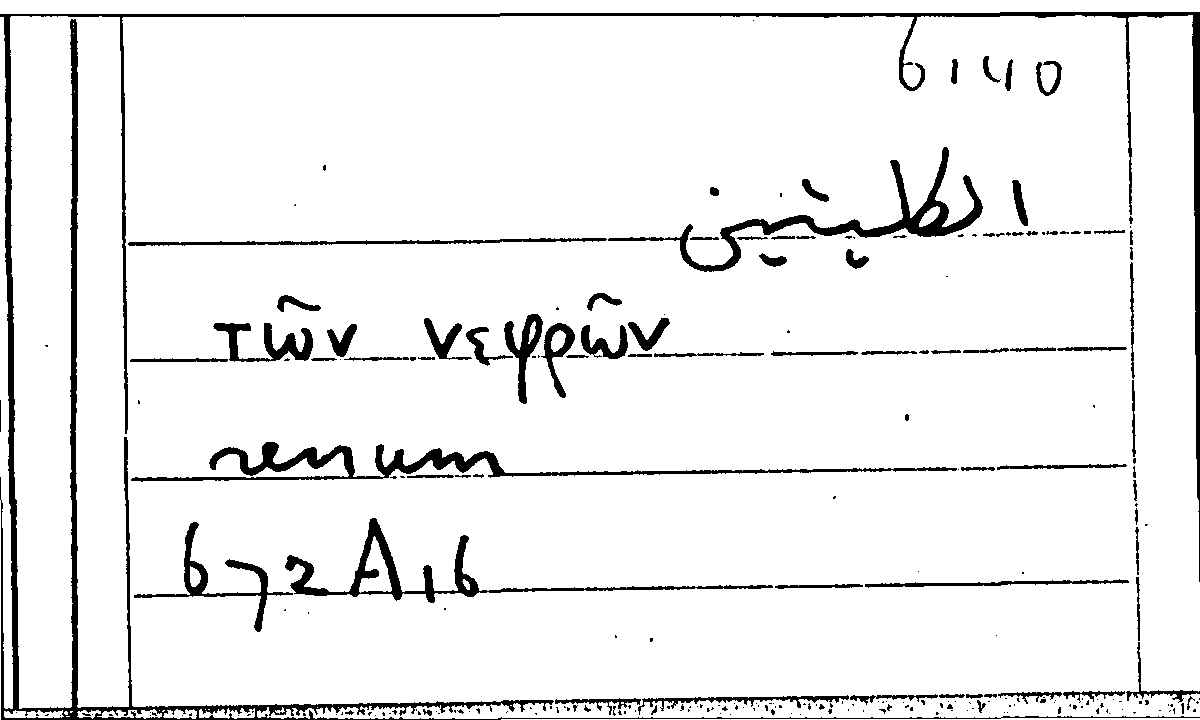 6140
الكليتين
τῶν νεφρῶν
renum
672 A 16